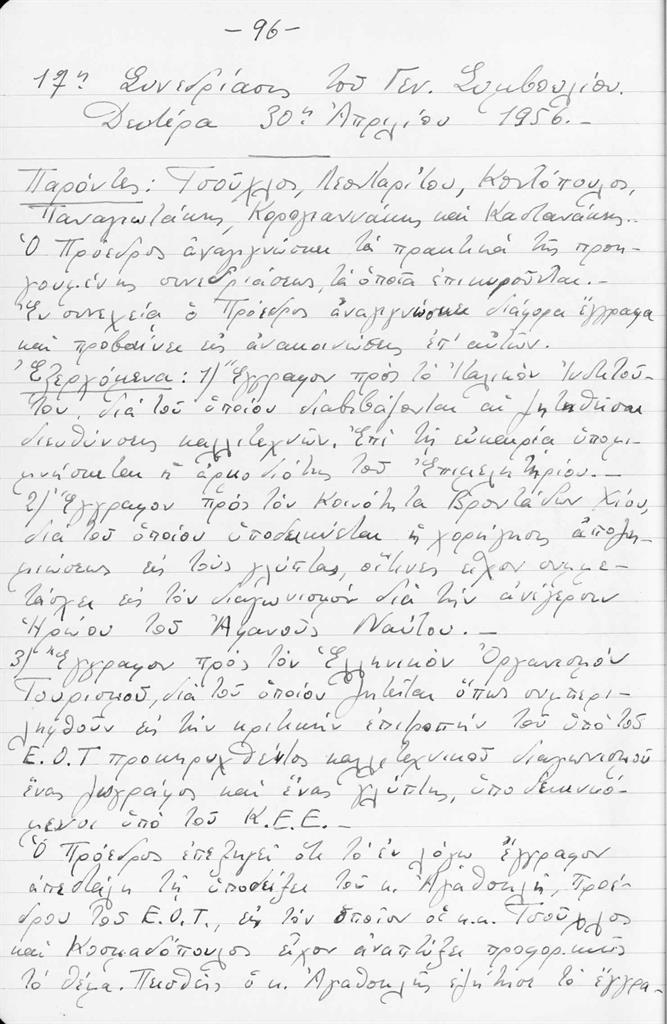 -96-
17η Συνεδρίασις τοῦ Γεν. Συμβουλίου.
Δευτέρα 30η Ἀπριλίου 1956.-
Παρόντες: Τσοῦχλος, Λεονταρίτου, Κοντόπουλος,
Παναγιωτάκης, Κορογιαννάκης καὶ Καστανάκης.-
Ὁ Πρόεδρος ἀναγιγνώσκει τὰ πρακτικὰ τῆς προη-
γουμένης συνεδριάσεως, τὰ ὁποῖα ἐπικυροῦνται.-
Ἐν συνεχείᾳ ὁ Πρόεδρος ἀναγιγνώσκει διάφορα ἔγγραφα
καὶ προβαίνει εἰς ἀνακοινώσεις ἐπ' αὐτῶν.
Ἐξερχόμενα: 1) Ἔγγραφον πρὸς τὸ Ἰταλικὸν Ἰνστιτοῦ-
του, διὰ τοῦ ὁποίου διαβιβάζονται αἱ ζητηθεῖσαι
διευθύνσεις καλλιτεχνῶν. Ἐπὶ τῇ εὐκαιρίᾳ ὑπομι-
μνήσκεται ἡ ἁρμοδιότης τοῦ Ἐπιμελητηρίου.-
2) Ἔγγραφον πρὸς τὸν Κοινότητα Βροντάδων Χίου,
διὰ τοῦ ὁποίου ὑποδεικνύεται ἡ χορήγησις ἀποζη-
μιώσεως εἰς τοὺς γλύπτας, οἵτινες εἶχον συμμε-
τάσχει εἰς τὸν διαγωνισμόν διὰ τὴν ἀνέγερσιν
Ἡρώου τοῦ Ἀφανοῦς Ναύτου.-
3) Ἔγγραφον πρὸς τὸν Ἑλληνικὸν Ὀργανισμόν
Τουρισμοῦ, διὰ τοῦ ὁποίου ζητεῖται ὅπως συμπερι-
ληφθοῦν εἰς τὴν κριτικὴν ἐπιτροπὴν τοῦ ὑπὸ τοῦ
Ε.Ο.Τ προκηρυχθέντος καλλιτεχνικοῦ διαγωνισμοῦ
ἕνας ζωγράφος καὶ ἕνας γλύπτης, ὑποδεικνυό-
μενοι ὑπὸ τοῦ Κ.Ε.Ε.-
Ὁ Πρόεδρος ἐπεξηγεῖ ὅτι τὸ ἐν λόγῳ ἔγγραφον
ἀπεστάλη τῇ ὑποδείξει τοῦ κ. Ἀγαθοκλῆ, Προέ-
δρου τοῦ Ε.Ο.Τ., εἰς τὸν ὁποῖον οἱ κ.κ. Τσοῦχλος
καὶ Κοσμαδόπουλος εἶχον ἀναπτύξει προφορικῶς
τὸ θέμα. Πεισθεὶς ὁ κ. Ἀγαθοκλῆς ἐζήτησε τὸ ἔγγρα-